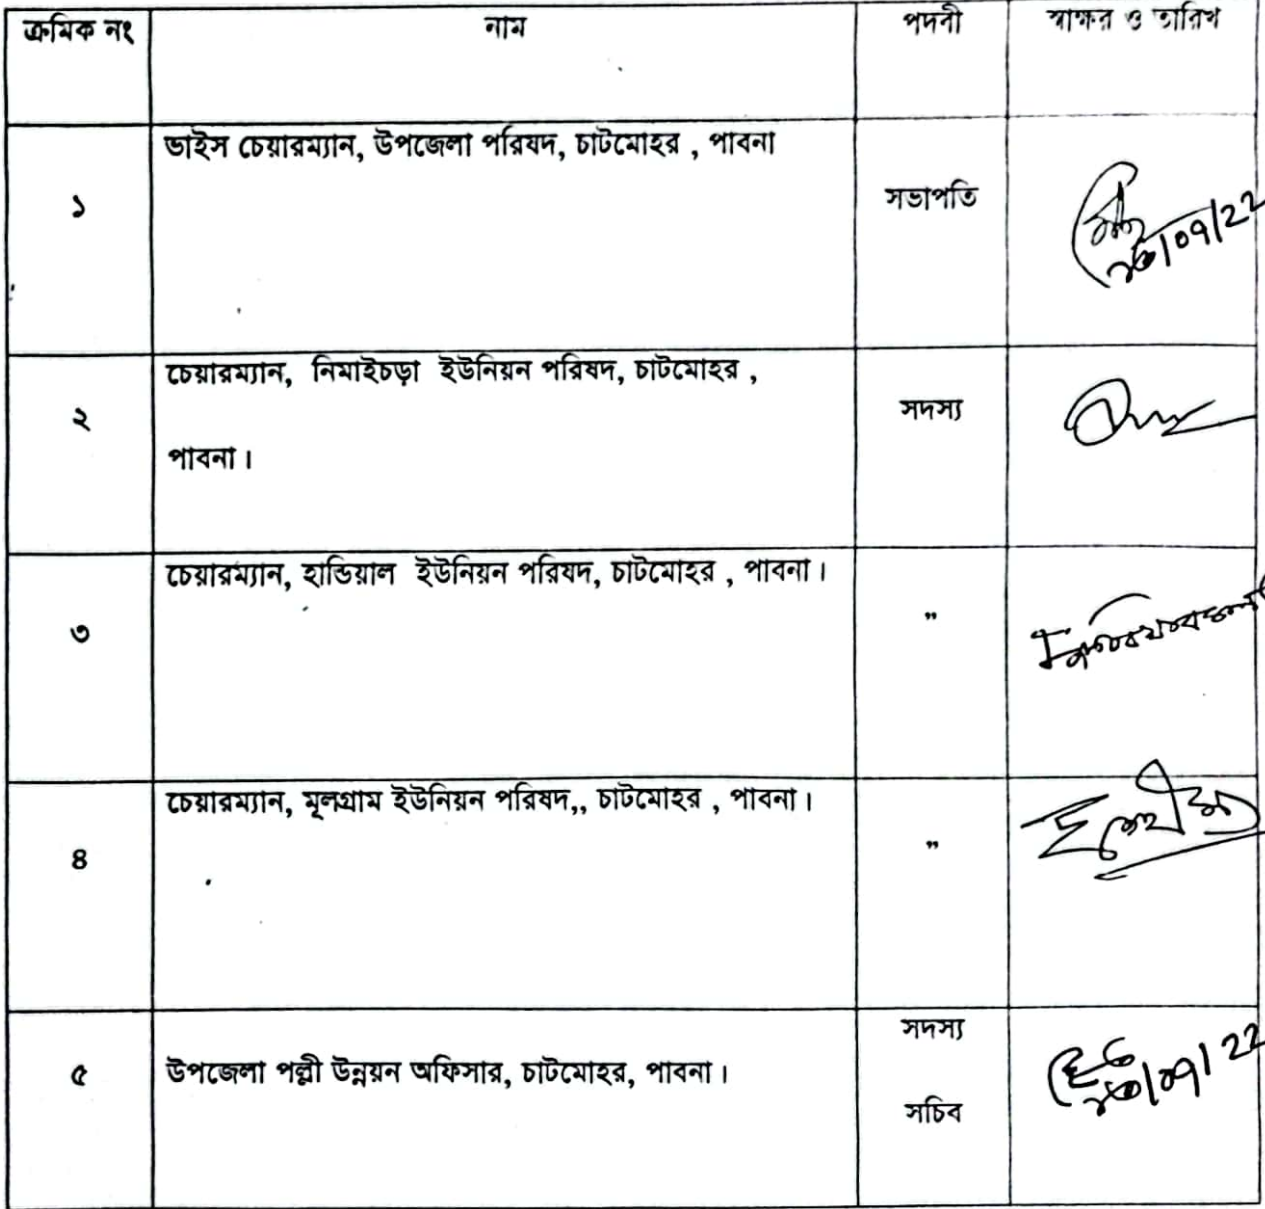 ক্রমিক নং নাম পদবী স্বাক্ষর ও তারিখ
ভাইস চেয়ারম্যান, উপজেলা পরিষদ, চাটমোহর , পাবনা
১ সভাপতি
চেয়ারম্যান, নিমাইচড়া ইউনিয়ন পরিষদ, চাটমোহর ,
২ সদস্য
পাবনা।
চেয়ারম্যান, হান্ডিয়াল ইউনিয়ন পরিষদ, চাটমোহর , পাবনা।
৩ "
চেয়ারম্যান, মূলগ্রাম ইউনিয়ন পরিষদ,, চাটমোহর , পাবনা।
৪ "
সদস্য
৫ উপজেলা পল্লী উন্নয়ন অফিসার, চাটমোহর, পাবনা।
সচিব